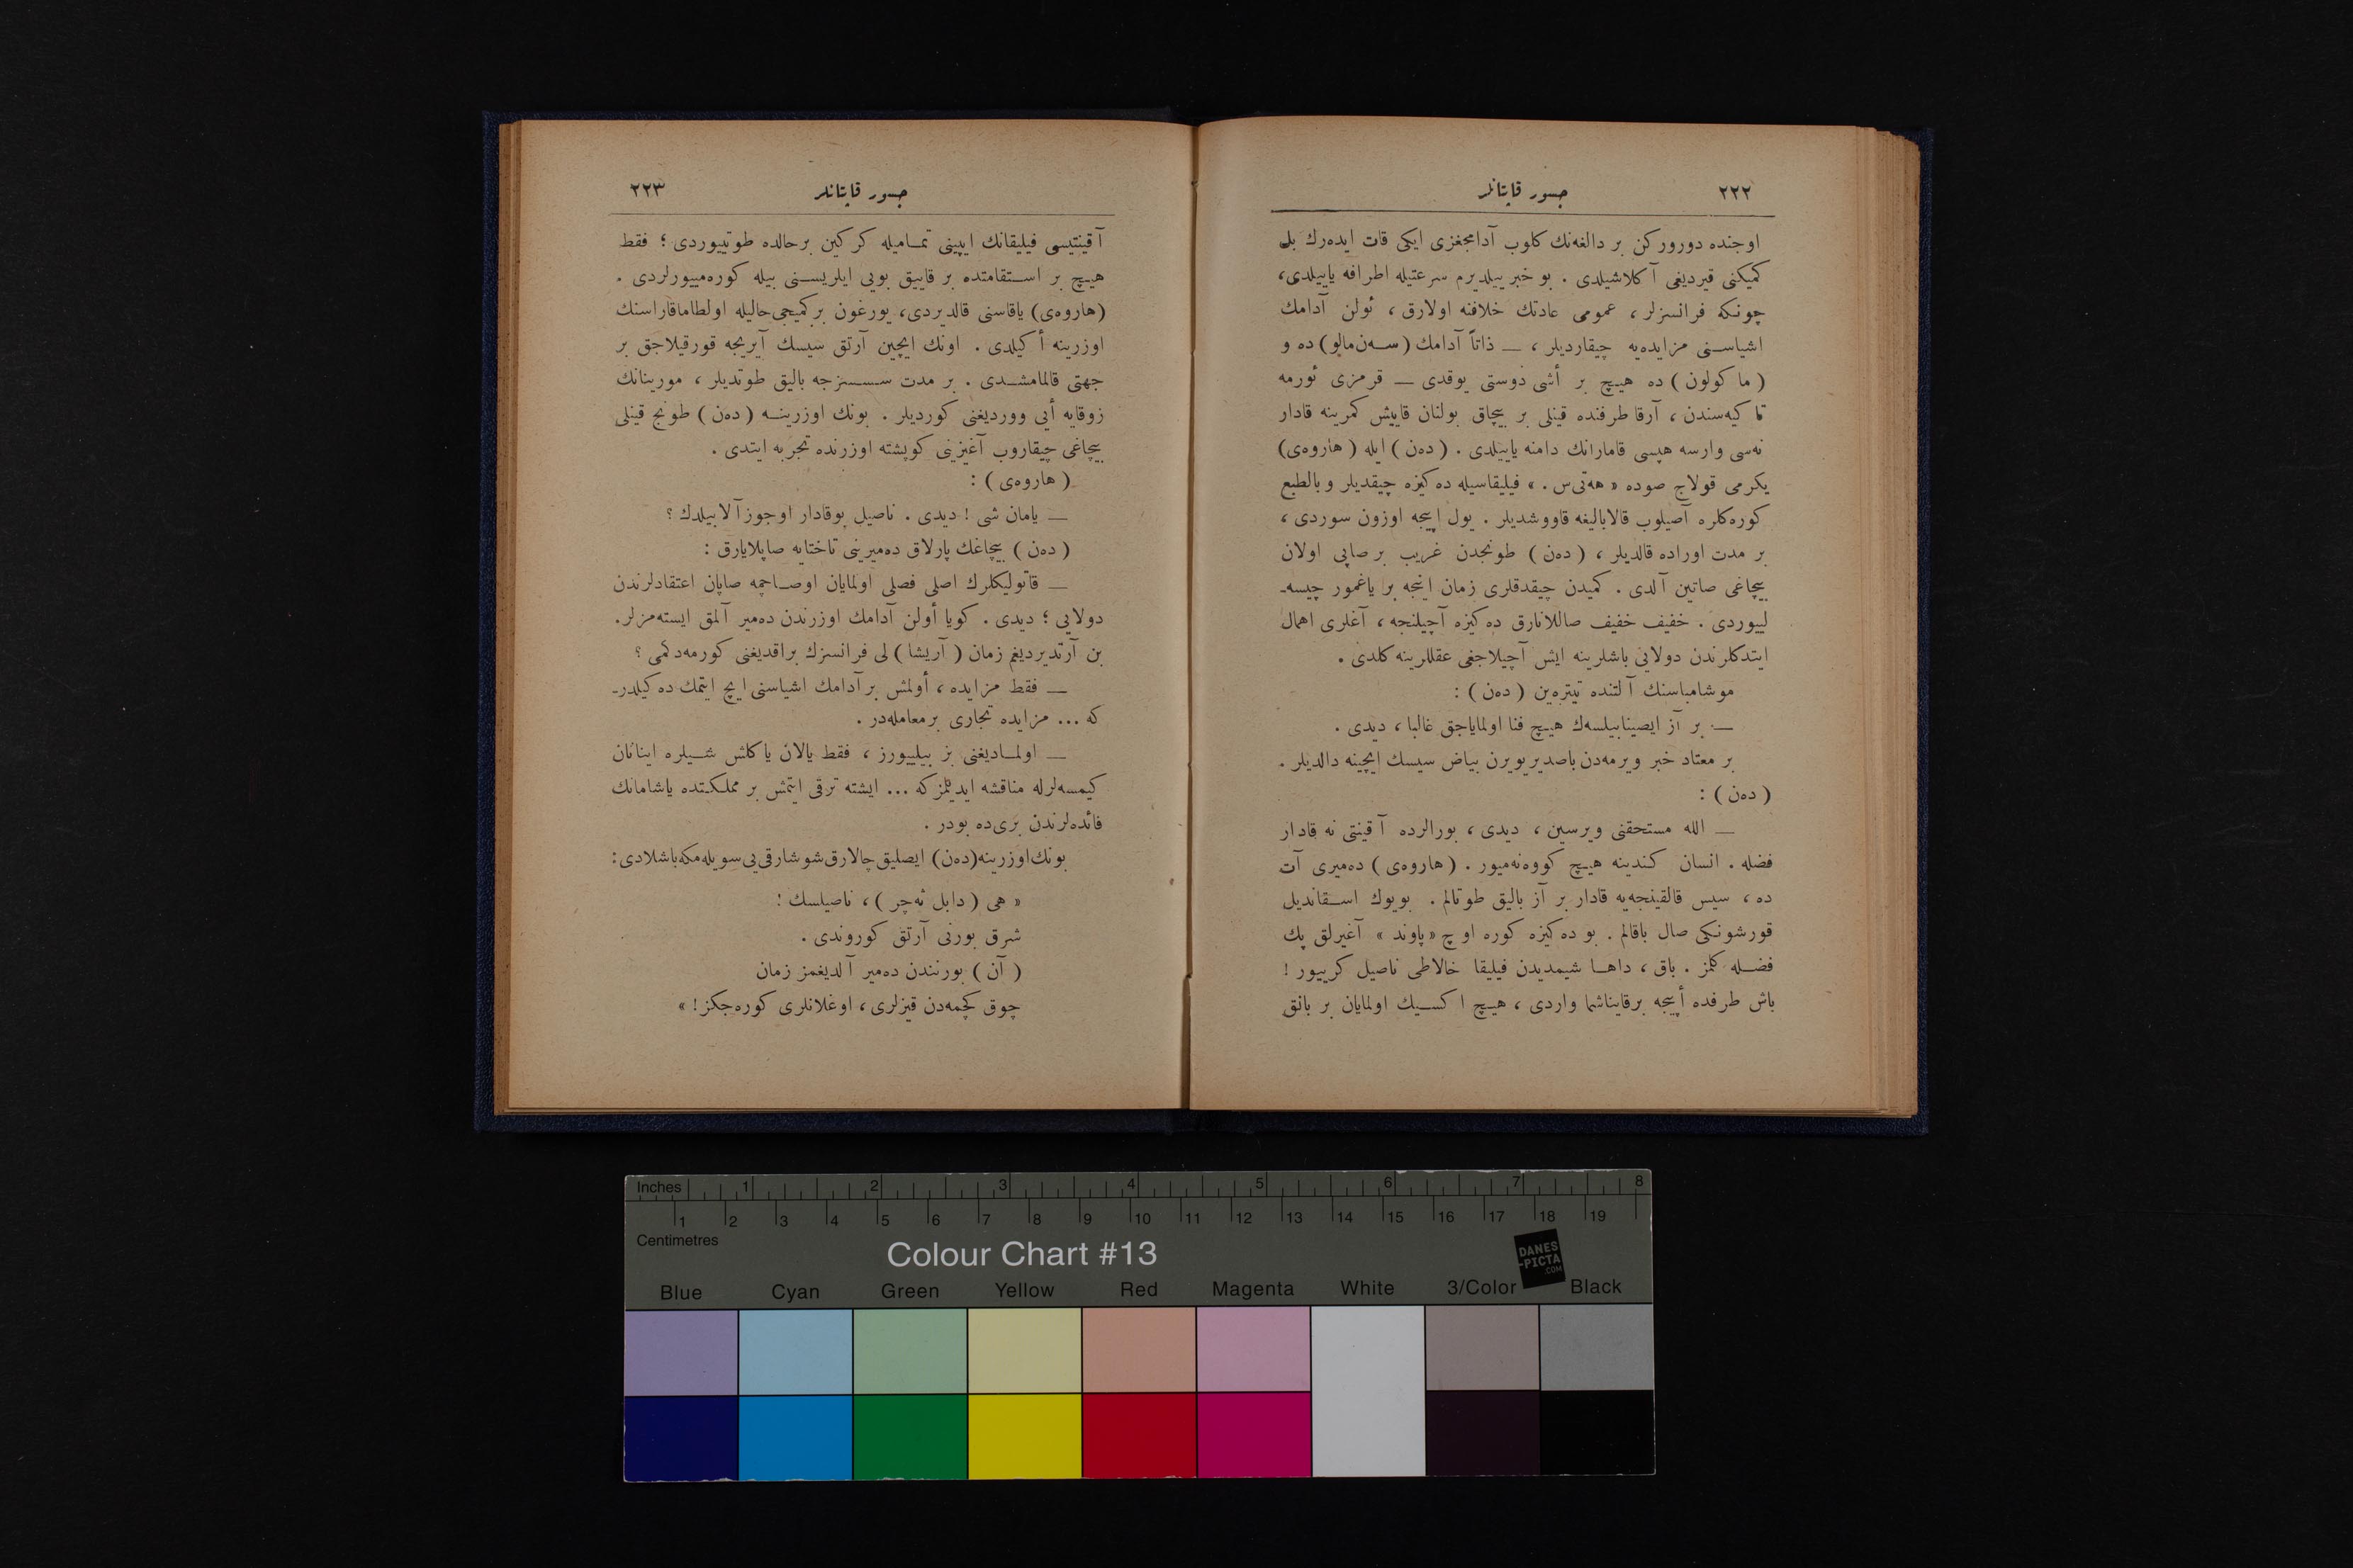 ٢٢٢ جسور قاپتانلر
اوجنده دورورکن بر دالغه‌نك کلوب آدامجغزی ایکی قات ایده‌رك بل
کمیکنی قیردیغی آکلاشیلدی . بو خبر ییلدیرم سرعتیله اطرافه یاییلدی،
چونکه فرانسزلر ، عمومی عادتك خلافنه اولارق ، ئولن آدامك
اشیاسنی مزایده‌یه چیقاردیلر ، ـ ذاتاً آدامك (سه‌ن‌مالو) ده و
( ماکولون ) ده هیچ بر أشی دوستی یوقدی ـ قرمزی ئورمه
تاکیه‌سندن ، آرقا طرفنده قینلی بر بیچاق بولنان قاییش کمرینه قادار
نه‌سی وارسه هپسی قامارانك دامنه یاییلدی . ( ده‌ن ) ایله ( هاروه‌ی )
یکرمی قولاج صوده « هه‌تی‌س . » فیلیقاسیله ده‌کیزه چیقدیلر و بالطبع
کوره‌کلره آصیلوب قالابالیغه قاووشدیلر . یول اپیجه اوزون سوردی ،
بر مدت اوراده قالدیلر ، ( ده‌ن ) طونجدن غریب بر صاپی اولان
بیچاغی صاتین آلدی . کمیدن چیقدقلری زمان اینجه بر یاغمور چیسه‌ـ
لییوردی . خفیف خفیف صاللانارق ده‌کیزه آچیلنجه ، آغلری اهمال
ایتدکلرندن دولایی باشلرینه ایش آچیلاجغی عقللرینه کلدی .
موشامباسنك آلتنده تیتره‌ین ( ده‌ن ) :
ـ بر آز ایصینابیلسه‌ك هیچ فنا اولمایاجق غالبا ، دیدی .
بر معتاد خبر ویرمه‌دن باصدیریویرن بیاض سیسك ایچینه دالدیلر .
( ده‌ن ) :
ـ الله مستحقنی ویرسین ، دیدی ، بورالرده آقینتی نه قادار
فضله . انسان کندینه هیچ کووه‌نه‌میور . ( هاروه‌ی ) ده‌میری آت
ده ، سیس قالقینجه‌یه قادار بر آز بالیق طوتالم . بویوك اسقاندیل
قورشونکی صال باقالم . بو ده‌کیزه کوره اوچ « پاوند » آغیرلق پك
فضله کلمز . باق ، داها شیمدیدن فیلیقا خالاطی ناصیل کرییور !
باش طرفده أپیجه برقایناشما واردی ، هیچ اکسیك اولمایان بر بانق
جسور قاپتانلر ٢٢٣
آقینتیسی فیلیقانك ایپینی تمامیله کرکین برحالده طوتییوردی ؛ فقط
هیچ بر استقامتده بر قاییق بویی ایلریسنی بیله کوره‌مییورلردی .
(هاروه‌ی) یاقاسنی قالدیردی، یورغون برکمیجی‌حالیله اولطاماقاراسنك
اوزرینه أکیلدی . اونك ایچین آرتق سیسك آیریجه قورقیلاجق بر
جهتی قالمامشدی . بر مدت سسسزجه بالیق طوتدیلر ، مورینانك
زوقایه أیی ووردیغنی کوردیلر . بونك اوزرینه ( ده‌ن ) طونج قینلی
بیچاغی چیقاروب آغیزینی کوپشته اوزرنده تجربه ایتدی .
( هاروه‌ی ) :
ـ یامان شی ! دیدی . ناصیل بوقادار اوجوزآلابیلدك ؟
( ده‌ن ) بیچاغك پارلاق ده‌میرینی تاختایه صاپلایارق :
ـ قاتولیکلرك اصلی فصلی اولمایان اوصاجمه صاپان اعتقادلرندن
دولایی ؛ دیدی . کویا أولن آدامك اوزرندن ده‌میر آلمق ایسته‌مزلر.
بن آرتدیردیغم زمان ( آریشا ) لی فرانسزك براقدیغنی کورمه‌دکمی ؟
ـ فقط مزایده ، أولمش برآدامك اشیاسنی ایچ ایتمك ده‌کیلدرـ
که ... مزایده تجاری برمعامله‌در .
ـ اولمادیغنی بز بیلییورز ، فقط یالان یاکلش شیلره اینانان
کیمسه‌لرله مناقشه ایدیلمزکه ... ایشته ترقی ایتمش بر مملکتده یاشامانك
فائده‌لرندن بری‌ده بودر .
بونك‌اوزرینه(ده‌ن) ایصلیق‌چالارق‌شو‌شارقی‌یی‌سویله‌مکه‌باشلادی:
« هی ( دابل ئه‌چر ) ، ناصیلسك !
شرق بورنی آرتق کوروندی .
( آن ) بورنندن ده‌میر آلدیغمز زمان
چوق کچمه‌دن قیزلری ، اوغلانلری کوره‌جکز ! »
Inches 1 2 3 4 5 6 7 8
1 2 3 4 5 6 7 8 9 10 11 12 13 14 15 16 17 18 19
Centimetres
Colour Chart #13
DANES
-PICTA
.COM
Blue Cyan Green Yellow Red Magenta White 3/Color Black